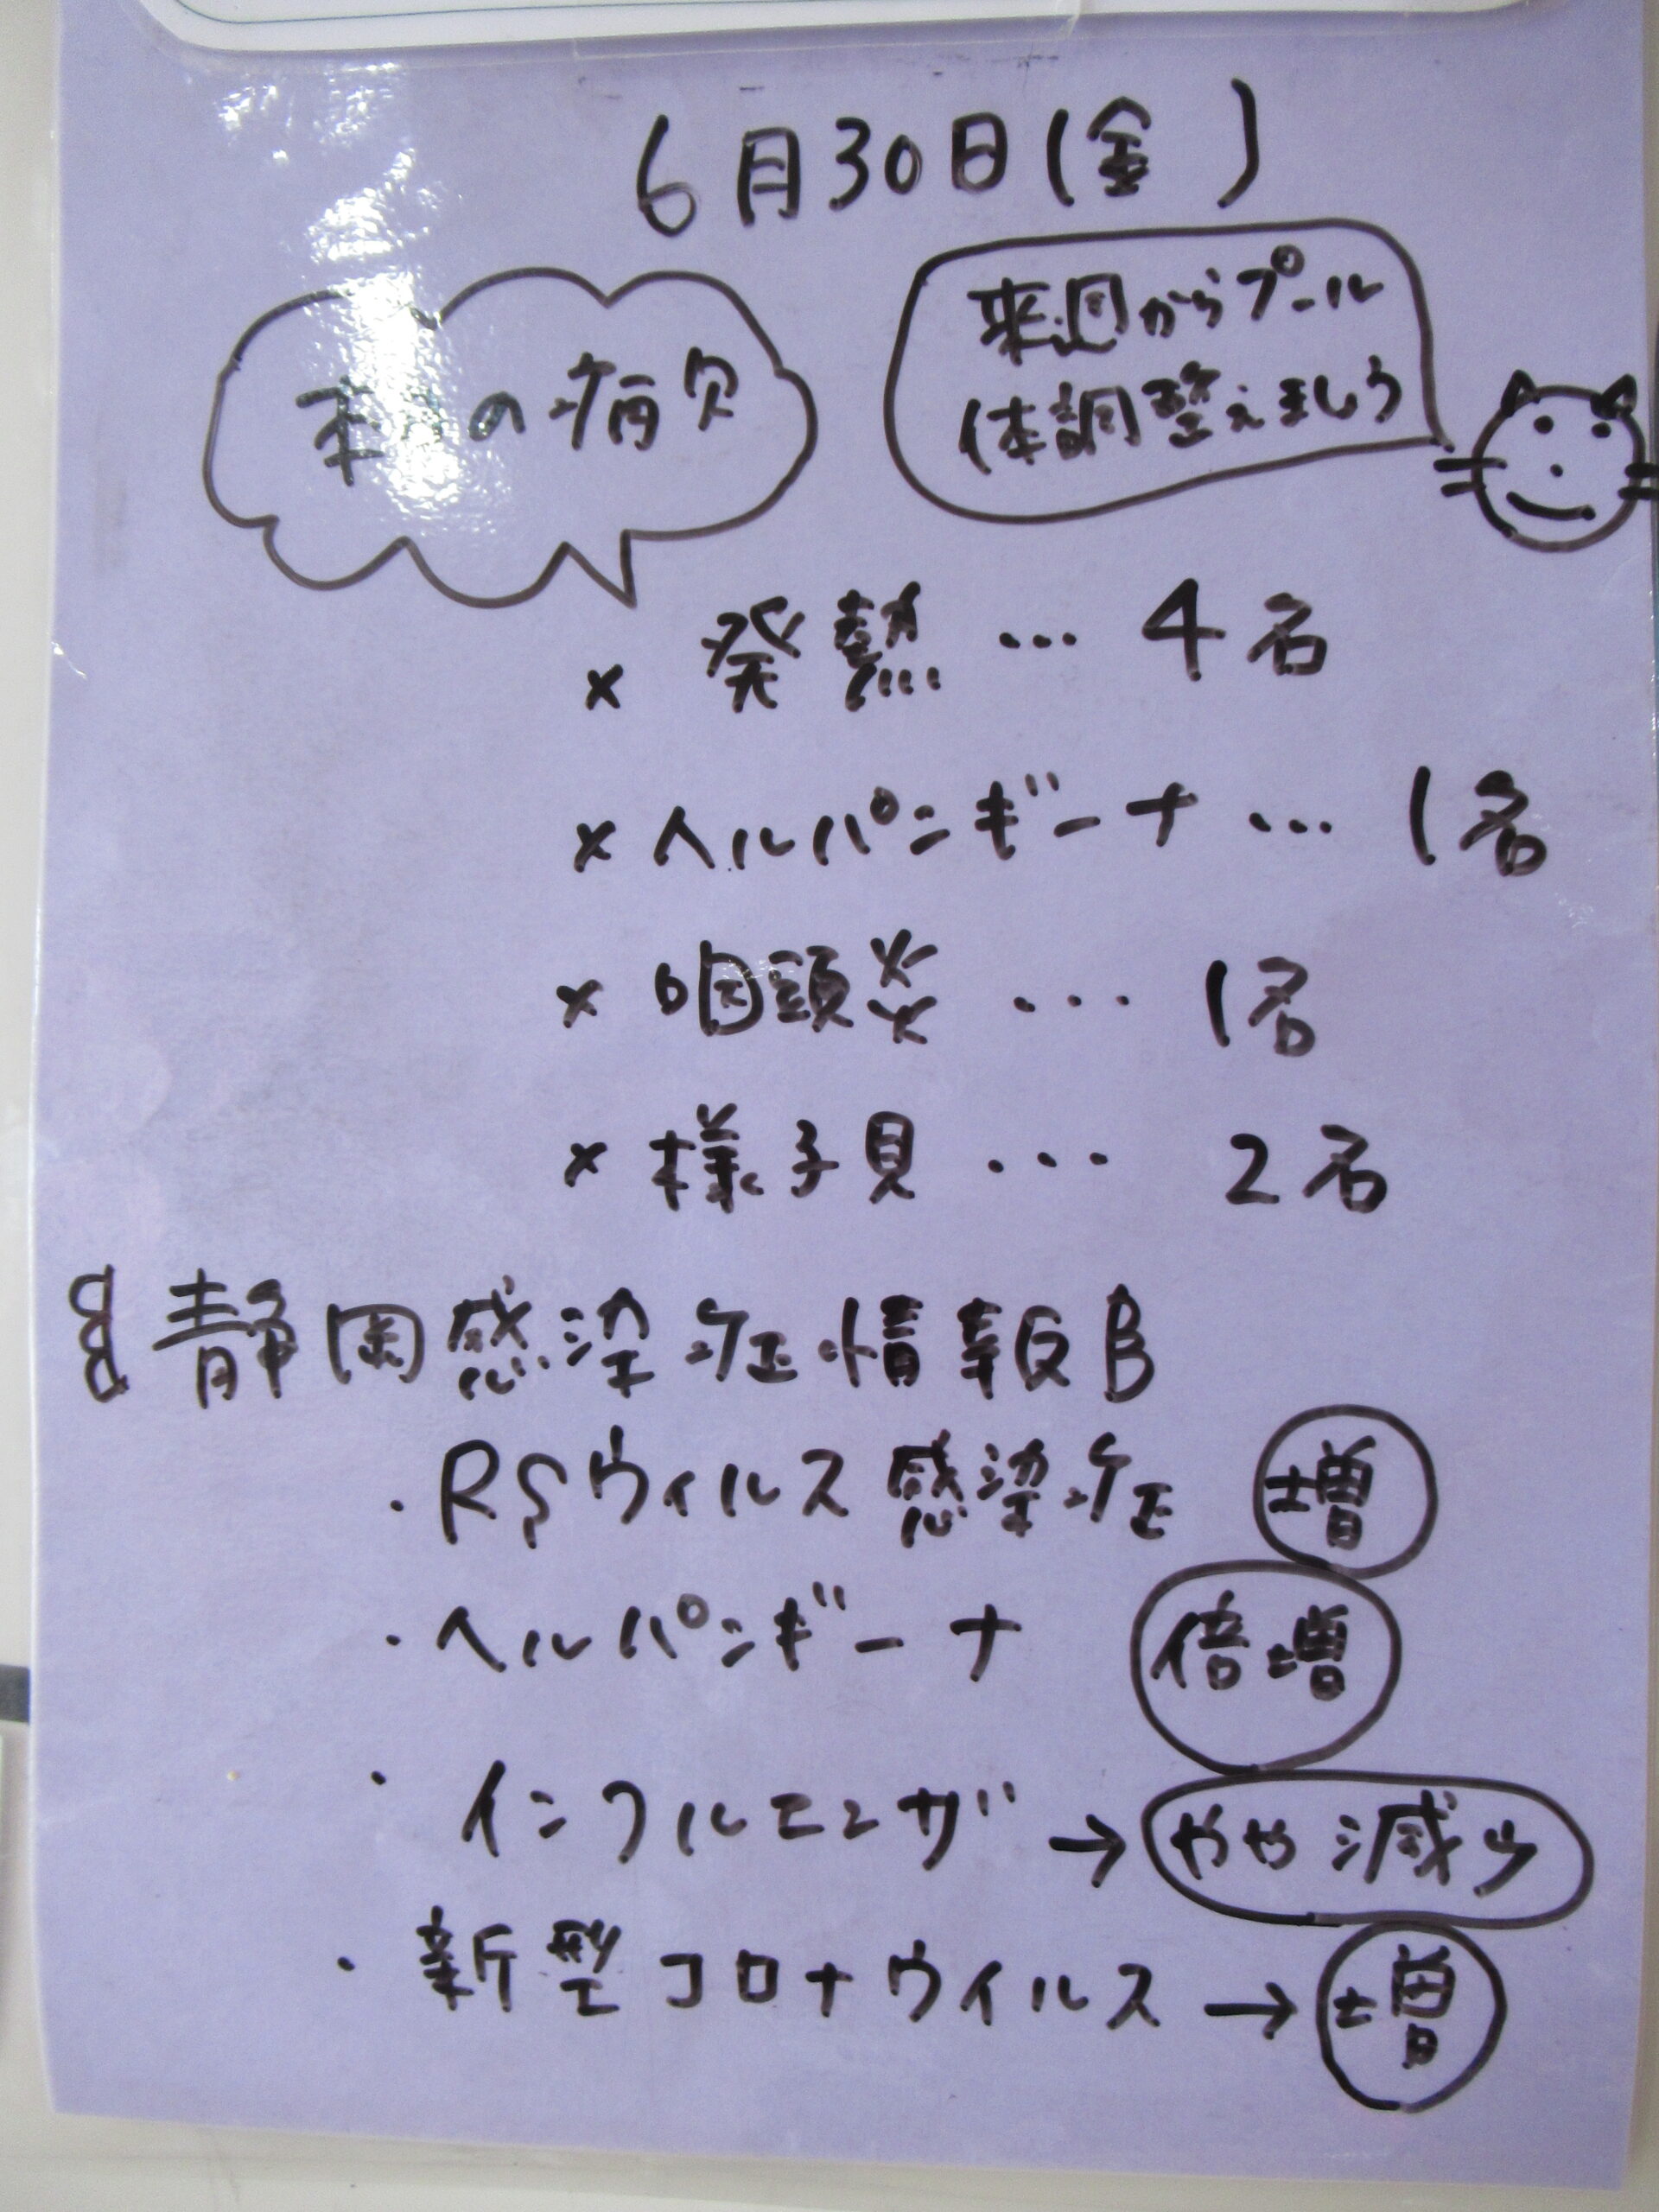 6月30日(金)
来週からプール
体調整えましょう
本日の病欠
× 発熱 … 4名
× ヘルパンギーナ … 1名
× 咽頭炎 … 1名
× 様子見 … 2名
静岡感染症情報
・RSウィルス感染症 増
・ヘルパンギーナ 倍増
・インフルエンザ → やや減少
・新型コロナウイルス → 増